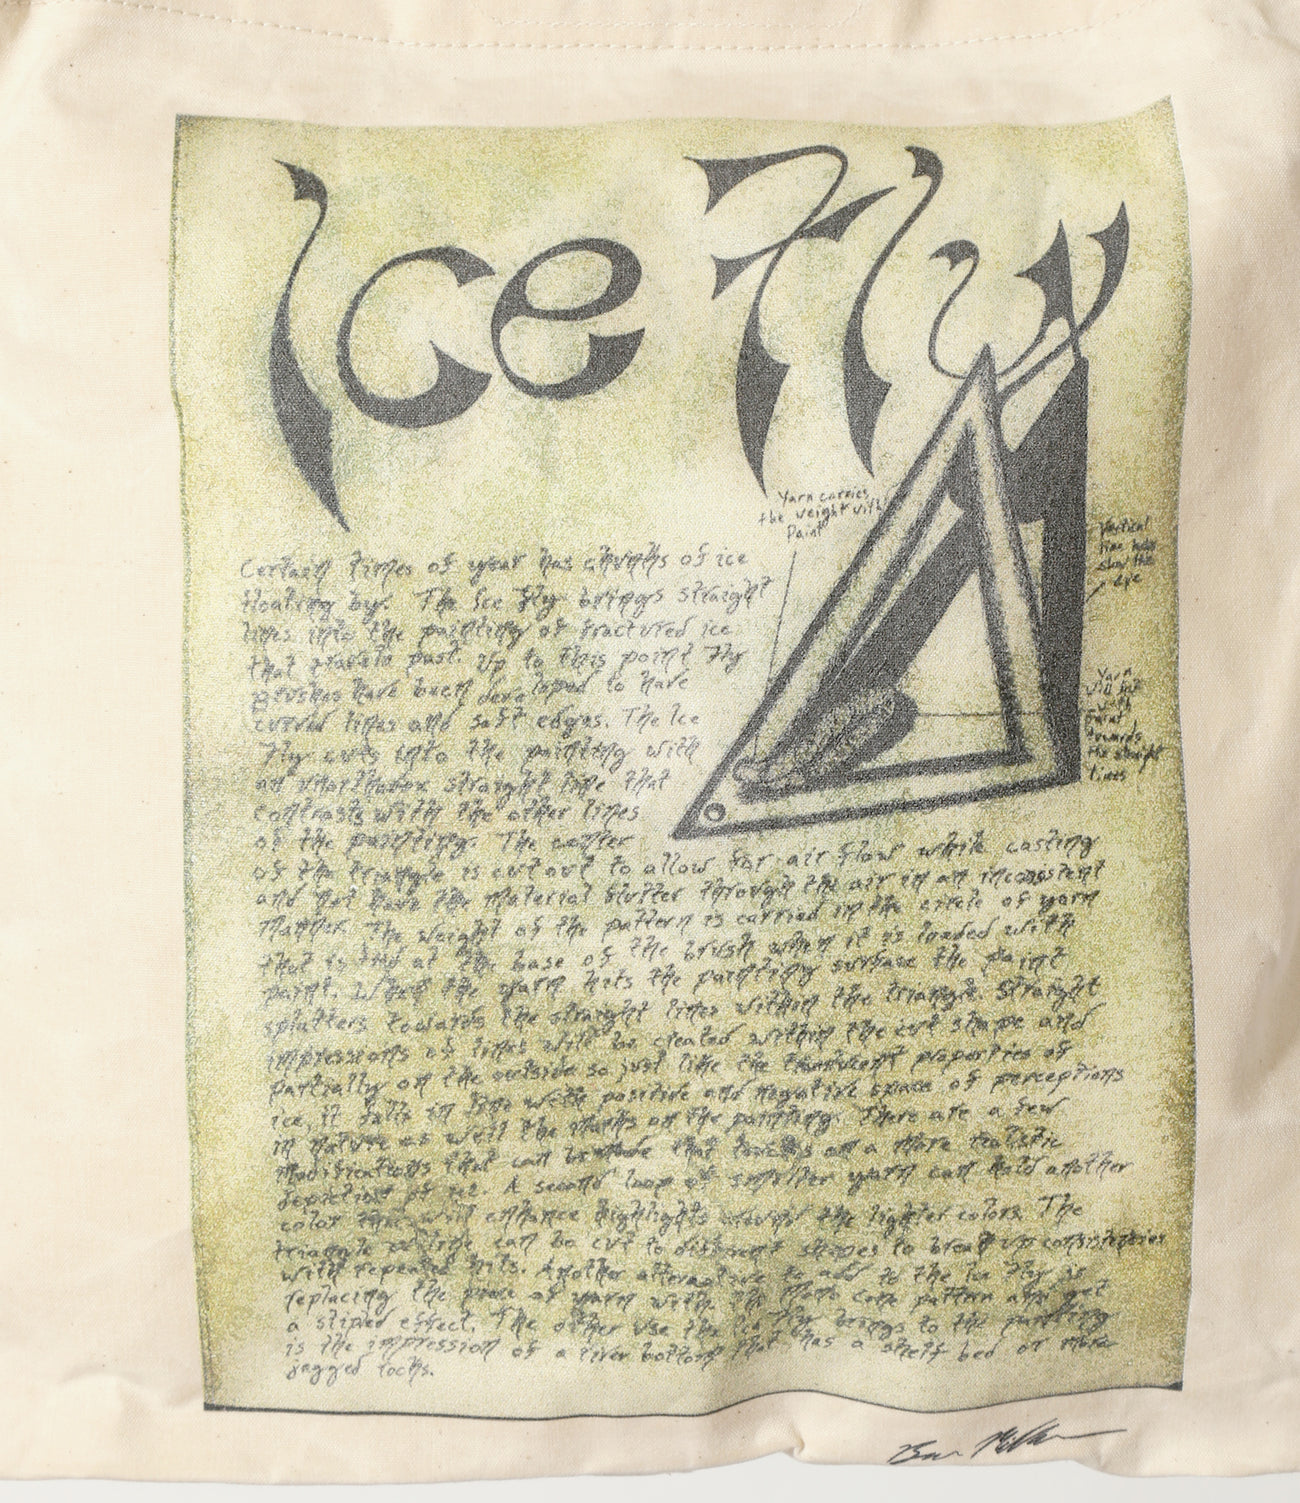 Ice Fly
Yarn carries
the weight with
Paint
Vertical
line
show the
Yarn
will
with
Paint
towards
the straight
lines
Certain times of year has chunks of ice
floating by. The Ice Fly brings straight
lines into the painting of fractured ice
that travels past. Up to this point Fly
Brushes have been developed to have
curved lines and soft edges. The Ice
Fly cuts into the painting with
an unorthodox straight line that
contrasts with the other lines
of the painting. The center
of the triangle is cut out to allow for air flow while casting
and not have the material flutter through the air in an inconsistent
manner. The weight of the pattern is carried in the circle of yarn
that is tied at the base of the brush when it is loaded with
paint. When the yarn hits the painting surface the paint
splatters towards the straight lines within the triangle. Straight
impressions of lines will be cleated within the cut shape and
partially on the outside so just like the properties of
ice, it falls in line with positive and negative space of perceptions
in nature as well the marks on the painting. There are a few
modifications that can be made that touches on a more realistic
depiction of ice. A second loop of smaller yarn can hold another
color that will enhance highlights around the lighter colors. The
triangle of line can be cut to different shapes to break up consistencies
with repeated hits. Another alternative to add to the Ice Fly is
replacing the piece of yarn with the cone pattern and get
a striped effect. The other use the Ice Fly brings to the painting
is the impression of a river bottom that has a shelf bed or more
jagged rocks.